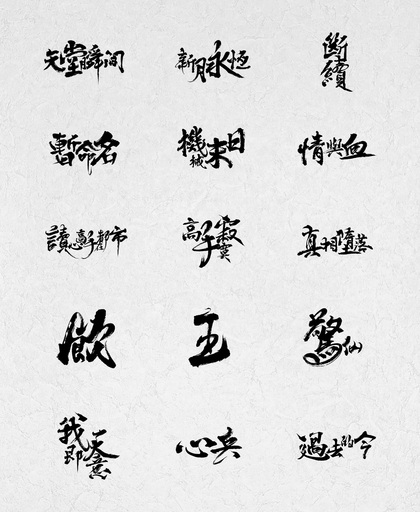 天堂瞬间
新月永恆
斷續
暫命名
機械末日
情與血
讀都市
高手寂寞
真相墮落
飲
主
驚仙
我即天意
心兵
過去的今